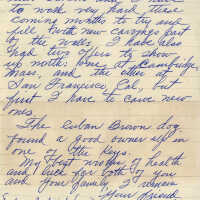 to work very hard these
coming months to try and
fill with new carvings part
of the walls. I have also
had two offers to show
up north: one at Cambridge,
Mass. and the other at
San Francisco, Cal., but
first I have to carve new
ones.
The Cuban Brown dog
found a good owner up in
one of the Keys.
My best wishes of health
and luck for both of you
and your family, I remain
Your friend